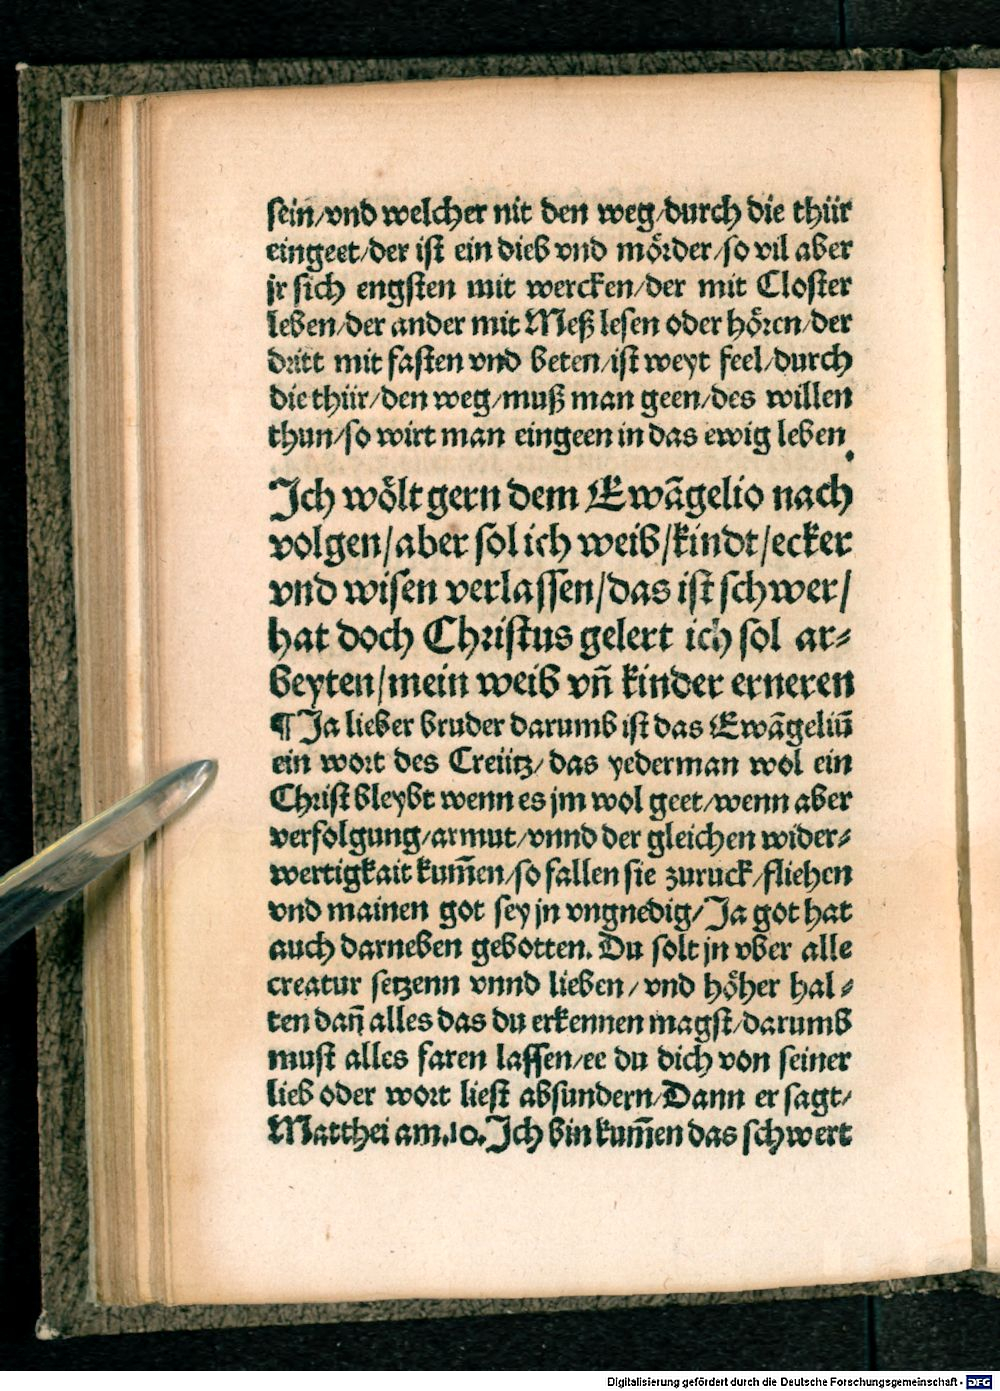 sein/vnd welcher nit den weg/durch die thür
eingeet/der ist ein dieb vnd mörder/so vil aber
jr sich engsten mit wercken/der mit Closter
leben/der ander mit Meß lesen oder hören/der
dritt mit fasten vnd beten/ist weyt feel/durch
die thür/den weg/muß man geen/des willen
thun/so wirt man eingeen in das ewig leben.
Ich wölt gern dem Ewãgelio nach
volgen/aber sol ich weib/kindt/ecker
vnd wisen verlassen/das ist schwer/
hat doch Christus gelert ich sol ar⸗
beyten/mein weib vñ kinder erneren
¶ Ja lieber bruder darumb ist das Ewãgeliũ
ein wort des Creütz/das yederman wol ein
Christ bleybt wenn es jm wol geet/wenn aber
verfolgung/armut/vnnd der gleichen wider⸗
wertigkait kum̃en/so fallen sie zuruck/fliehen
vnd mainen got sey jn vngnedig/Ja got hat
auch darneben gebotten. Du solt jn vber alle
creatur setzenn vnnd lieben/vnd höher hal⸗
ten dañ alles das du erkennen magst/darumb
must alles faren lassen/ee du dich von seiner
lieb oder wort liest absundern/Dann er sagt/
Matthei am.10.Ich bin kum̃en das schwert
Digitalisierung gefördert durch die Deutsche Forschungsgemeinschaft - DFG